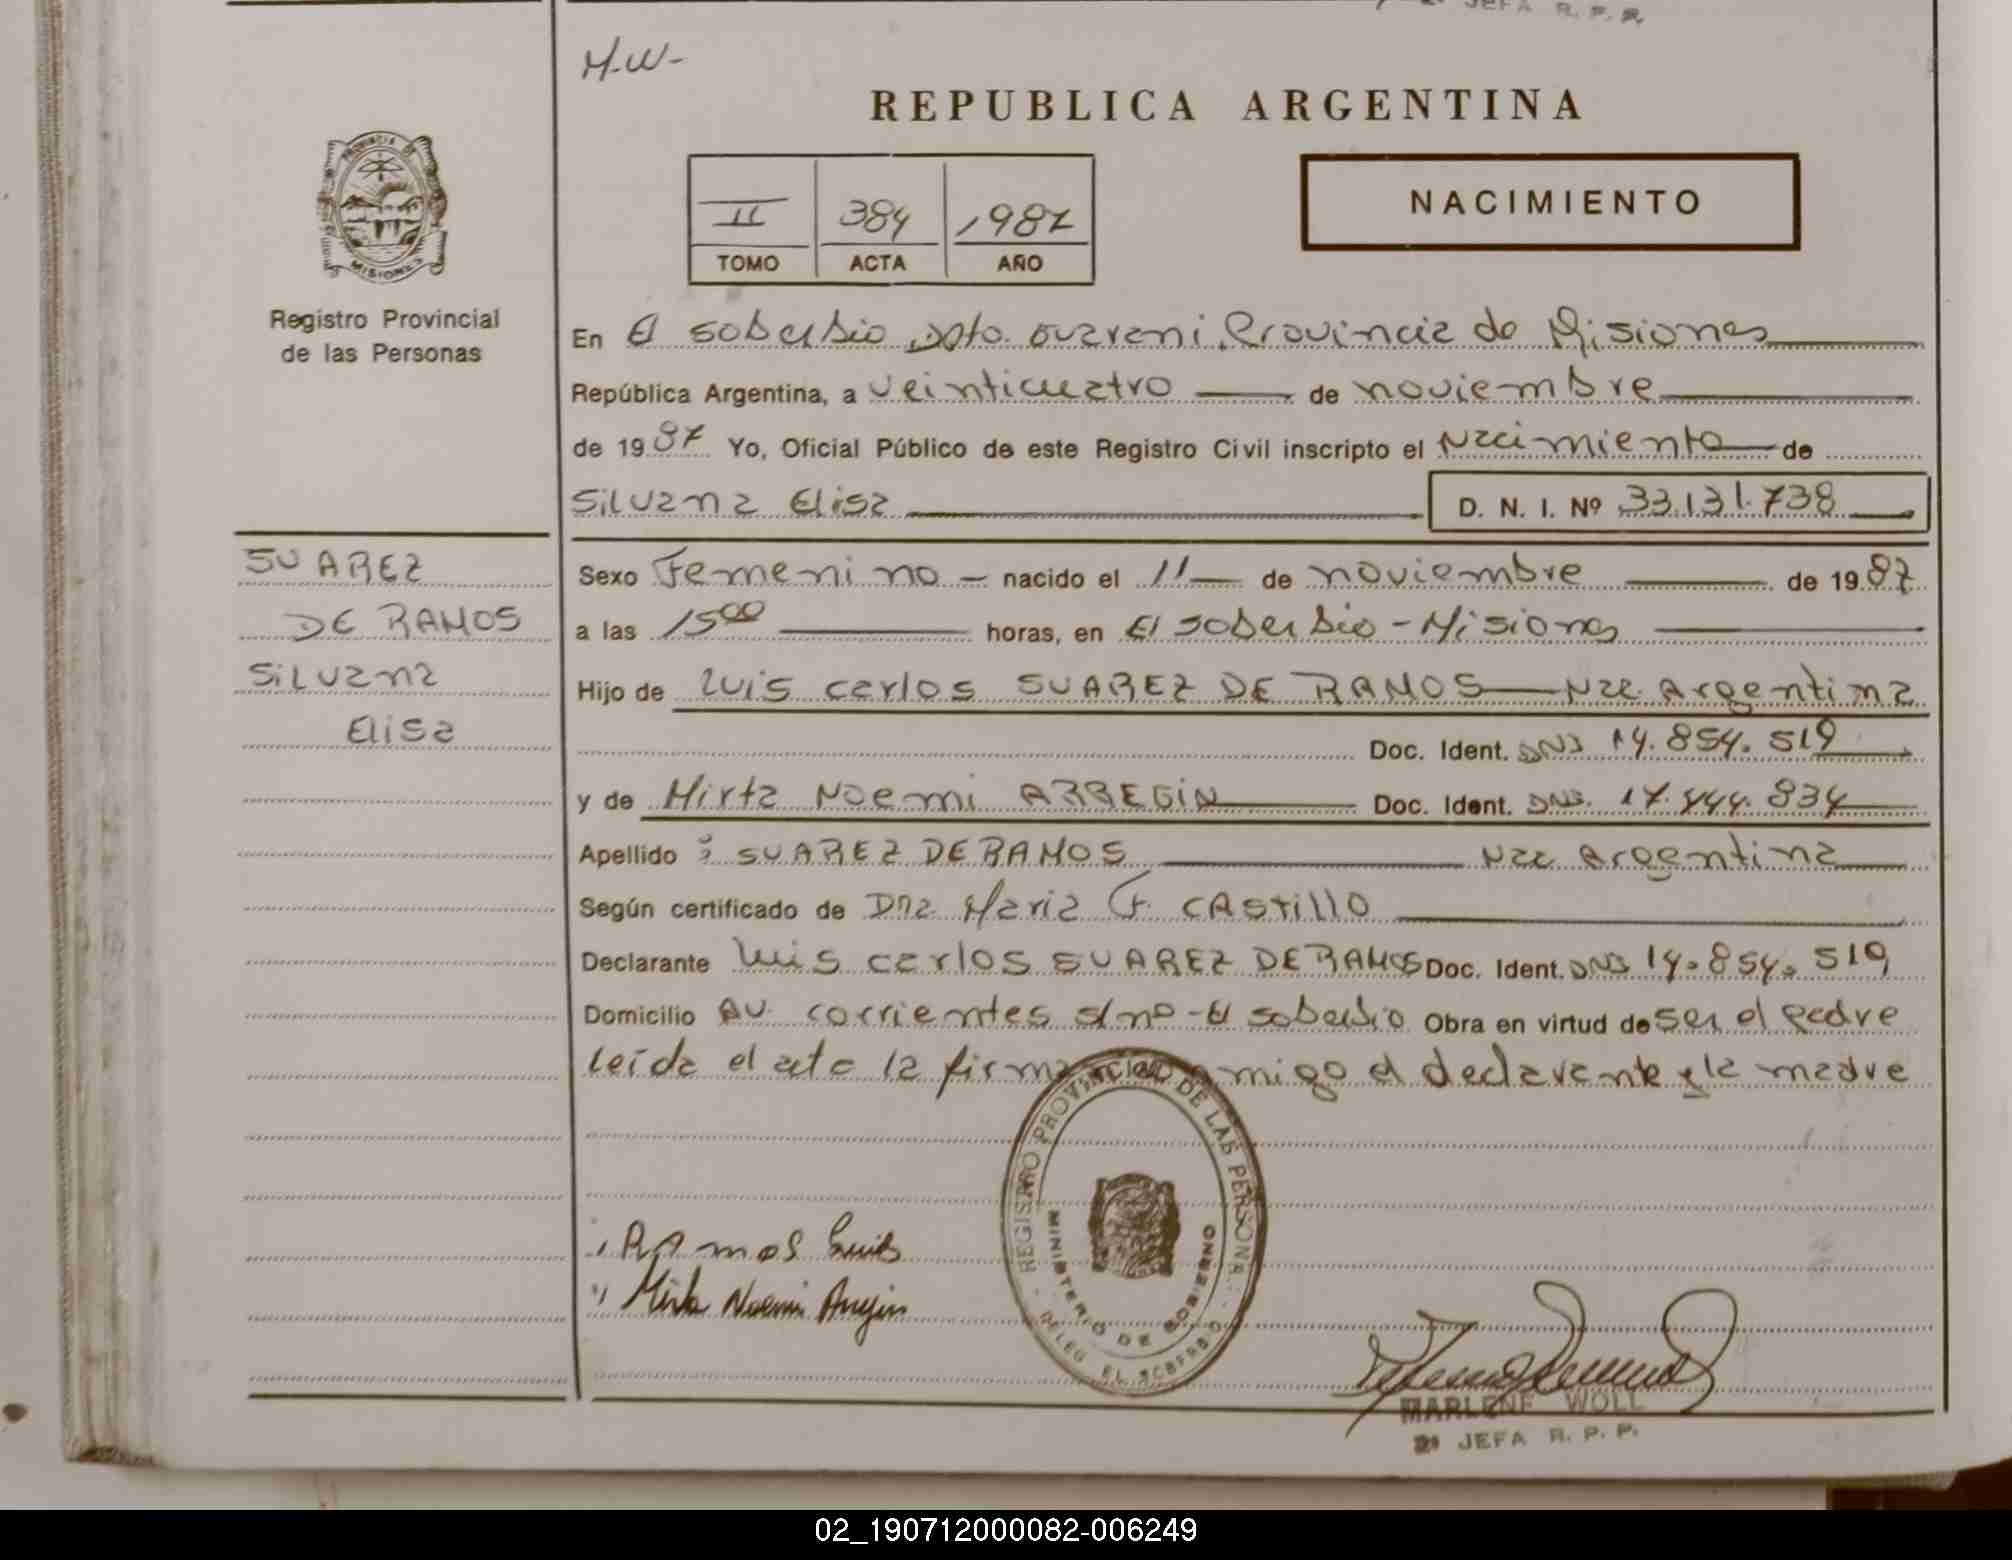 JEFA R. P. P.
M-W-
REPUBLICA ARGENTINA
PROVINCIA DE
MISIONES
II 384 1987
TOMO ACTA AÑO
NACIMIENTO
Registro Provincial
de las Personas
En El soberbio, Dpto. Guarani, Provincia de Misiones
República Argentina, a veinticuatro de noviembre
de 19 87 Yo, Oficial Público de este Registro Civil inscripto el Nacimiento de
Silvana Elisa D. N. I. Nº 33.131.738
SUAREZ
DE RAMOS
Silvana
Elisa
Sexo Femenino nacido el 11 de noviembre de 19 87
a las 15 00 horas, en El soberbio - Misiones
Hijo de Luis Carlos SUAREZ DE RAMOS Nac. Argentina
Doc. Ident. DNI 14.854.519
y de Mirta Noemi ARREGIN Doc. Ident. DNI. 17.444.834
Apellido : SUAREZ DE RAMOS Nac Argentina
Según certificado de Dña Maria F. CAStillo
Declarante Luis Carlos SUAREZ DE RAMOS Doc. Ident. DNI 14.854.519
Domicilio AV. corrientes s/nº - El soberbio Obra en virtud de ser el padre
leída el acta la firma conmigo el declarante y la madre
REGISTRO PROVINCIAL DE LAS PERSONAS
MINISTERIO DE GOBIERNO
DELEG. EL SOBERBIO
Ramos Luis
Mirta Noemi Arregin
MARLENE WOLL
JEFA R. P. P.
02_190712000082-006249